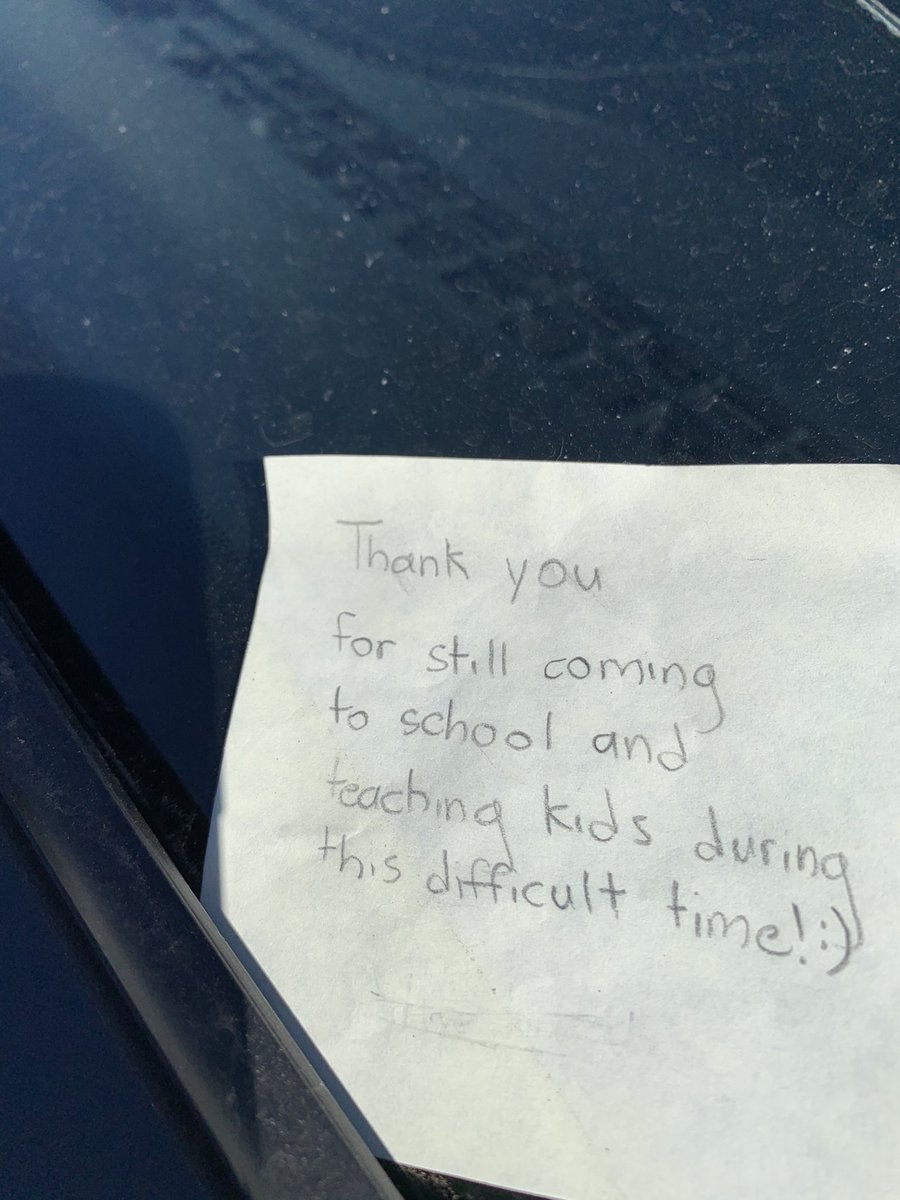 Thank you
for still coming
to school and
teaching kids during
this difficult time! :)